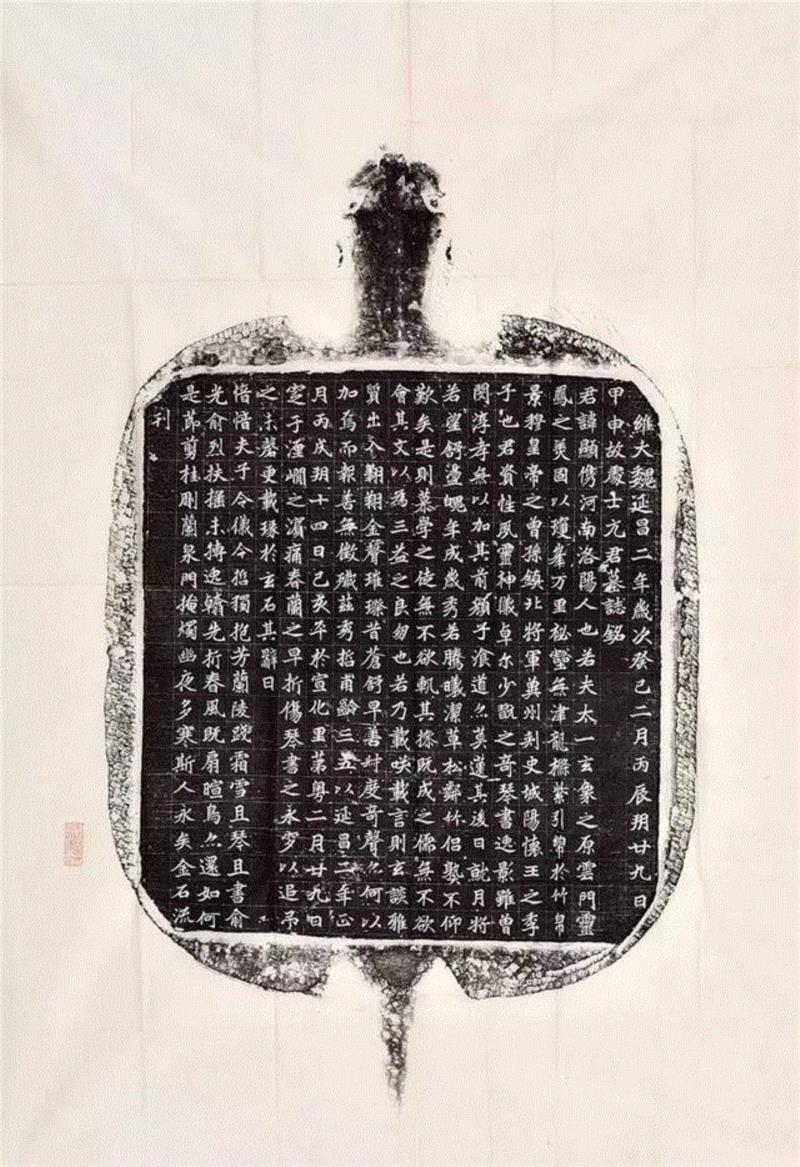 維大魏延昌二年歲次癸巳二月丙辰朔廿九日
甲申故處士元君墓誌銘
君諱顯儁河南洛陽人也若夫太一玄象之原雲門靈
鳳之美固以瓊峯万里秘壑無津龍檦紫引聯於竹帛
景穆皇帝之曾孫鎮北將軍冀州刾史城陽懷王之季
子也君資性夙靈神儀卓尒少翫之奇琴書逸影雖曾
閔淳孝無以加其前顏子飡道亦莫邁其後日就月將
若望舒盪魄年成歲秀若騰曦潔草松鄰竹侶熟不仰
歎矣是則慕學之徒無不欲軌其操既成之儒無不欲
會其文以為三益之良朋也若乃載咲載言則玄談雅
質出入翺翔金聲璀璨昔蒼舒早善秤度奇聲亦何以
加焉而報善無徵殲茲秀哲甫齡三五以延昌二年正
月丙戌朔十四日己亥卒於宣化里第粵二月廿九日
窆于瀍澗之濱痛春蘭之早折傷琴書之永穸以追弔
之未磬更載琢於玄石其辭曰
愔愔夫子令儀令哲獨抱芳蘭陵踐霜雪且琴且書俞
光俞烈扶搖未摶逸翰先折春風既扇暄鳥亦還如何
是節剪桂刖蘭泉門掩燭幽夜多寒斯人永矣金石流
刊